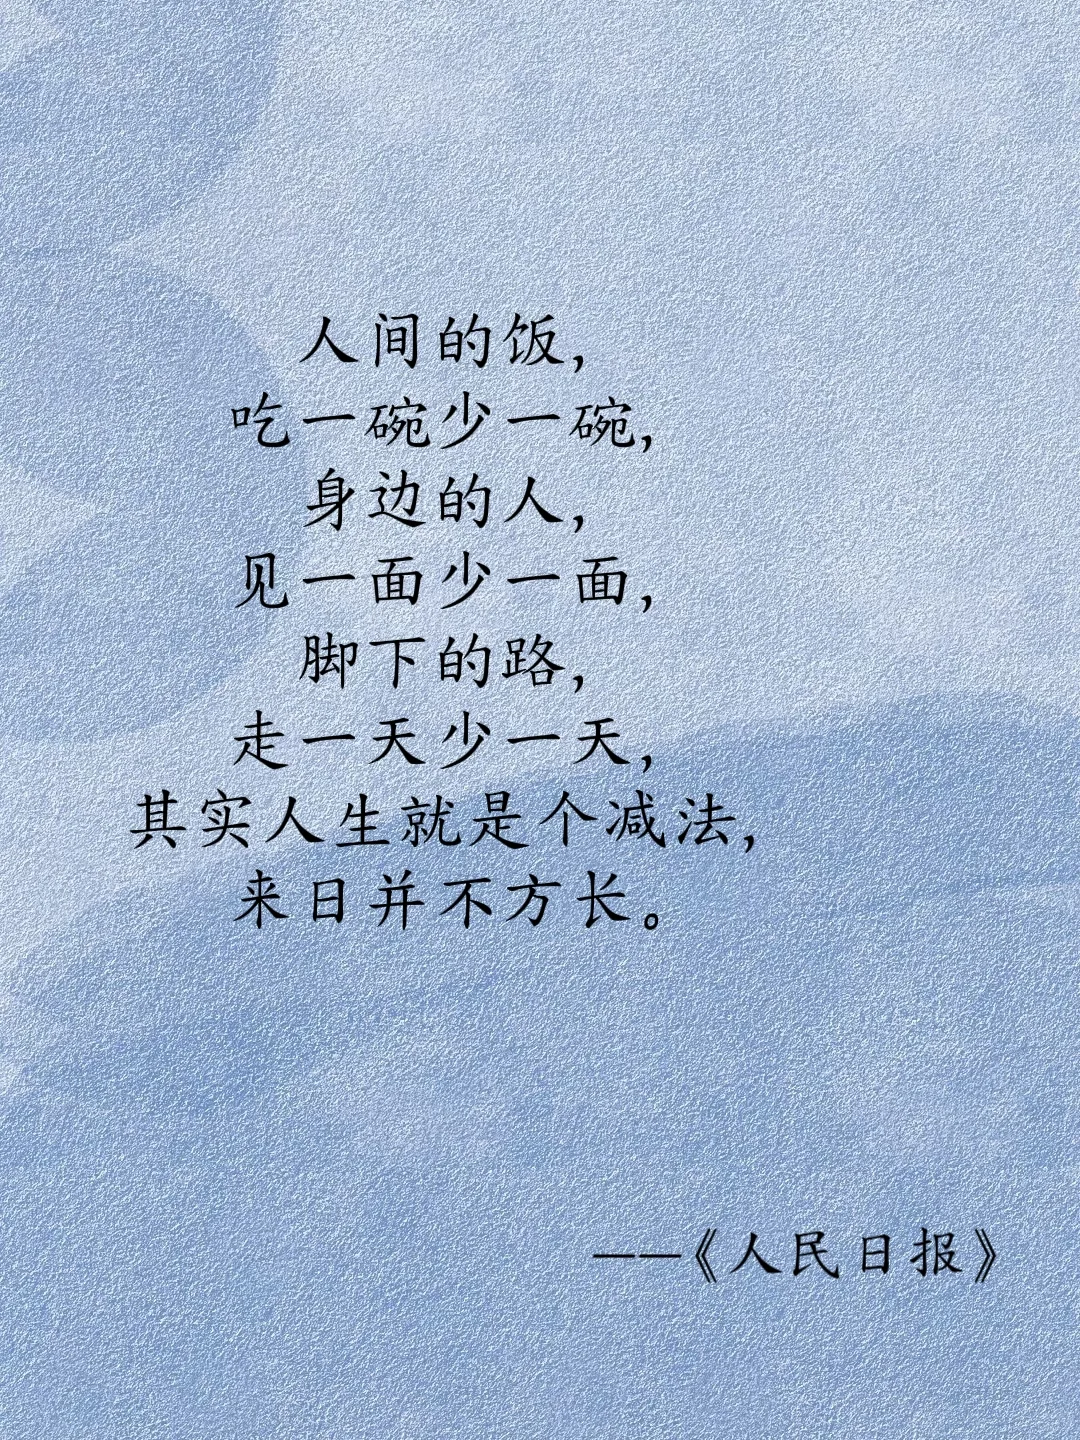 人间的饭,
吃一碗少一碗,
身边的人,
见一面少一面,
脚下的路,
走一天少一天,
其实人生就是个减法,
来日并不方长。
——《人民日报》